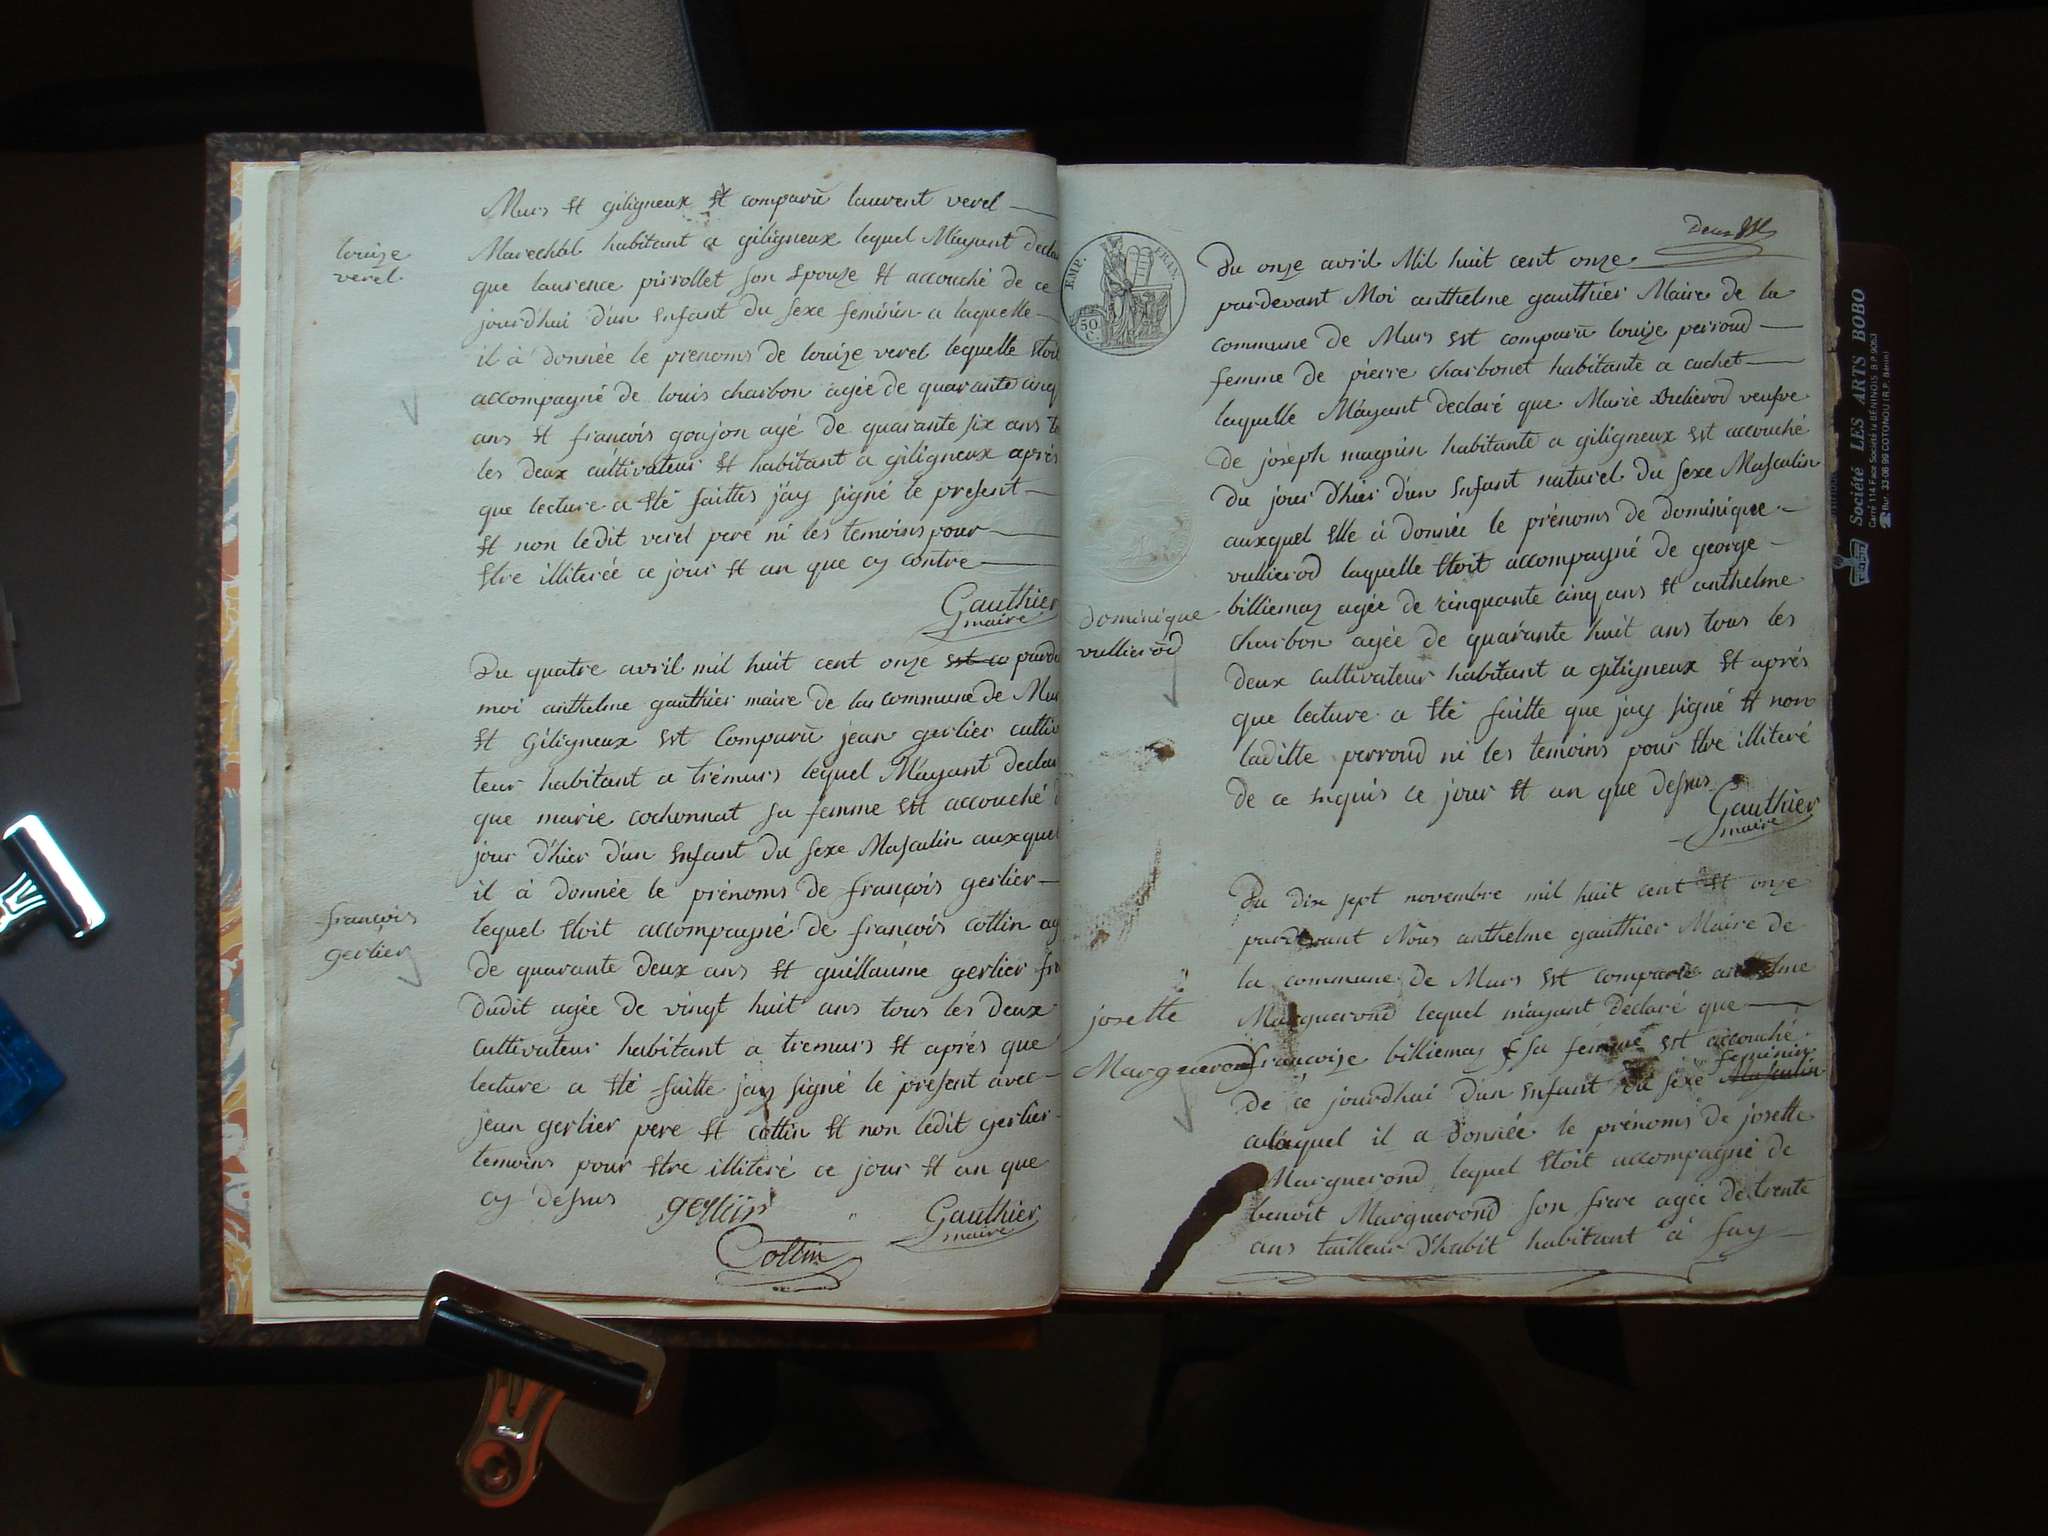 Murs Et giligneux Et comparu laurent verel
louize
verel
Marechal habitant a giligneux lequel M'ayant decla
que laurence pirrollet son Epouze Et accouché de ce
jourd'hui d'un Enfant du sexe feminin a laquelle
il à donnée le prenoms de louize verel lequelle Etoit
accompagné de louis charbon agée de quarante cinq
ans Et françois goujon agé de quarante six ans
les deux cultivateur Et habitant a giligneux aprés
que lecture a Eté faittes j'ay signé le present
Et non ledit verel pere ni les temoins pour
Etre illiterée ce jour Et an que cy contre
Gauthier
maire
Du quatre avril mil huit cent onze est co parde
moi anthelme gauthier maire de la commune de Mur
Et Giligneux Est Comparu jean gerlier cultiv
teur habitant a trémurs lequel M'ayant declar
que marie cochonnat sa femme Est accouché d
jour d'hier d'un Enfant du sexe Masculin auxquel
il à donnée le prénoms de françois gerlier
françois
gerlier
lequel Etoit accompagné de françois cottin ag
de quarante deux ans Et guillaume gerlier fre
dudit agée de vingt huit ans tous les deux
cultivateur habitant a tremurs Et aprés que
lecture a Eté faitte jay signé le present avec
jean gerlier pere Et cottin Et non ledit gerlier
temoins pour Etre illiteré ce jour Et an que
cy dessus gerlier Gauthier
maire
Cottin
EMP. FRAN.
50
C.
Du onze avril Mil huit cent onze
pardevant Moi anthelme gauthier Maire de la
commune de Murs Est comparu louize perroud
femme de pierre charbonet habitante a cuchet
laquelle M'ayant declaré que Marie vulierod veufve
de joséph magnin habitante a giligneux Est accouché
du jour d'hier d'un Enfant naturel du sexe Masculin
auxquel Elle à donnée le prénoms de dominique
vullierod laquelle Etoit accompagné de george
dominique
vullierod
billiemaz agée de cinquante cinq ans Et anthelme
charbon agée de quarante huit ans tous les
deux cultivateur habitant a giligneux Et aprés
que lecture a Eté faitte que jay signé Et non
laditte perroud ni les temoins pour Etre illiteré
de ce Enquis ce jour Et an que dessus
Gauthier
maire
Du dix sept novembre mil huit cent Et onze
pardevant Nous anthelme gauthier Maire de
la commune de Murs Est comparu anthelme
josette
Marguerond
Marguerond lequel m'ayant declaré que
francoize billiemaz sa femme Est accouché
feminin
de ce jourdhui d'un Enfant du sexe Masculin
alaquel il a donnée le prénoms de josette
Marguerond lequel Etoit accompagné de
benoit Marguerond son frere agée de trente
ans tailleur d'habit habitant à fay
Société LES ARTS BOBO
Carré 114 Face Société la BÉNINOIS B.P. 9053
Bur. 33-06-99 COTONOU (R.P. Bénin)